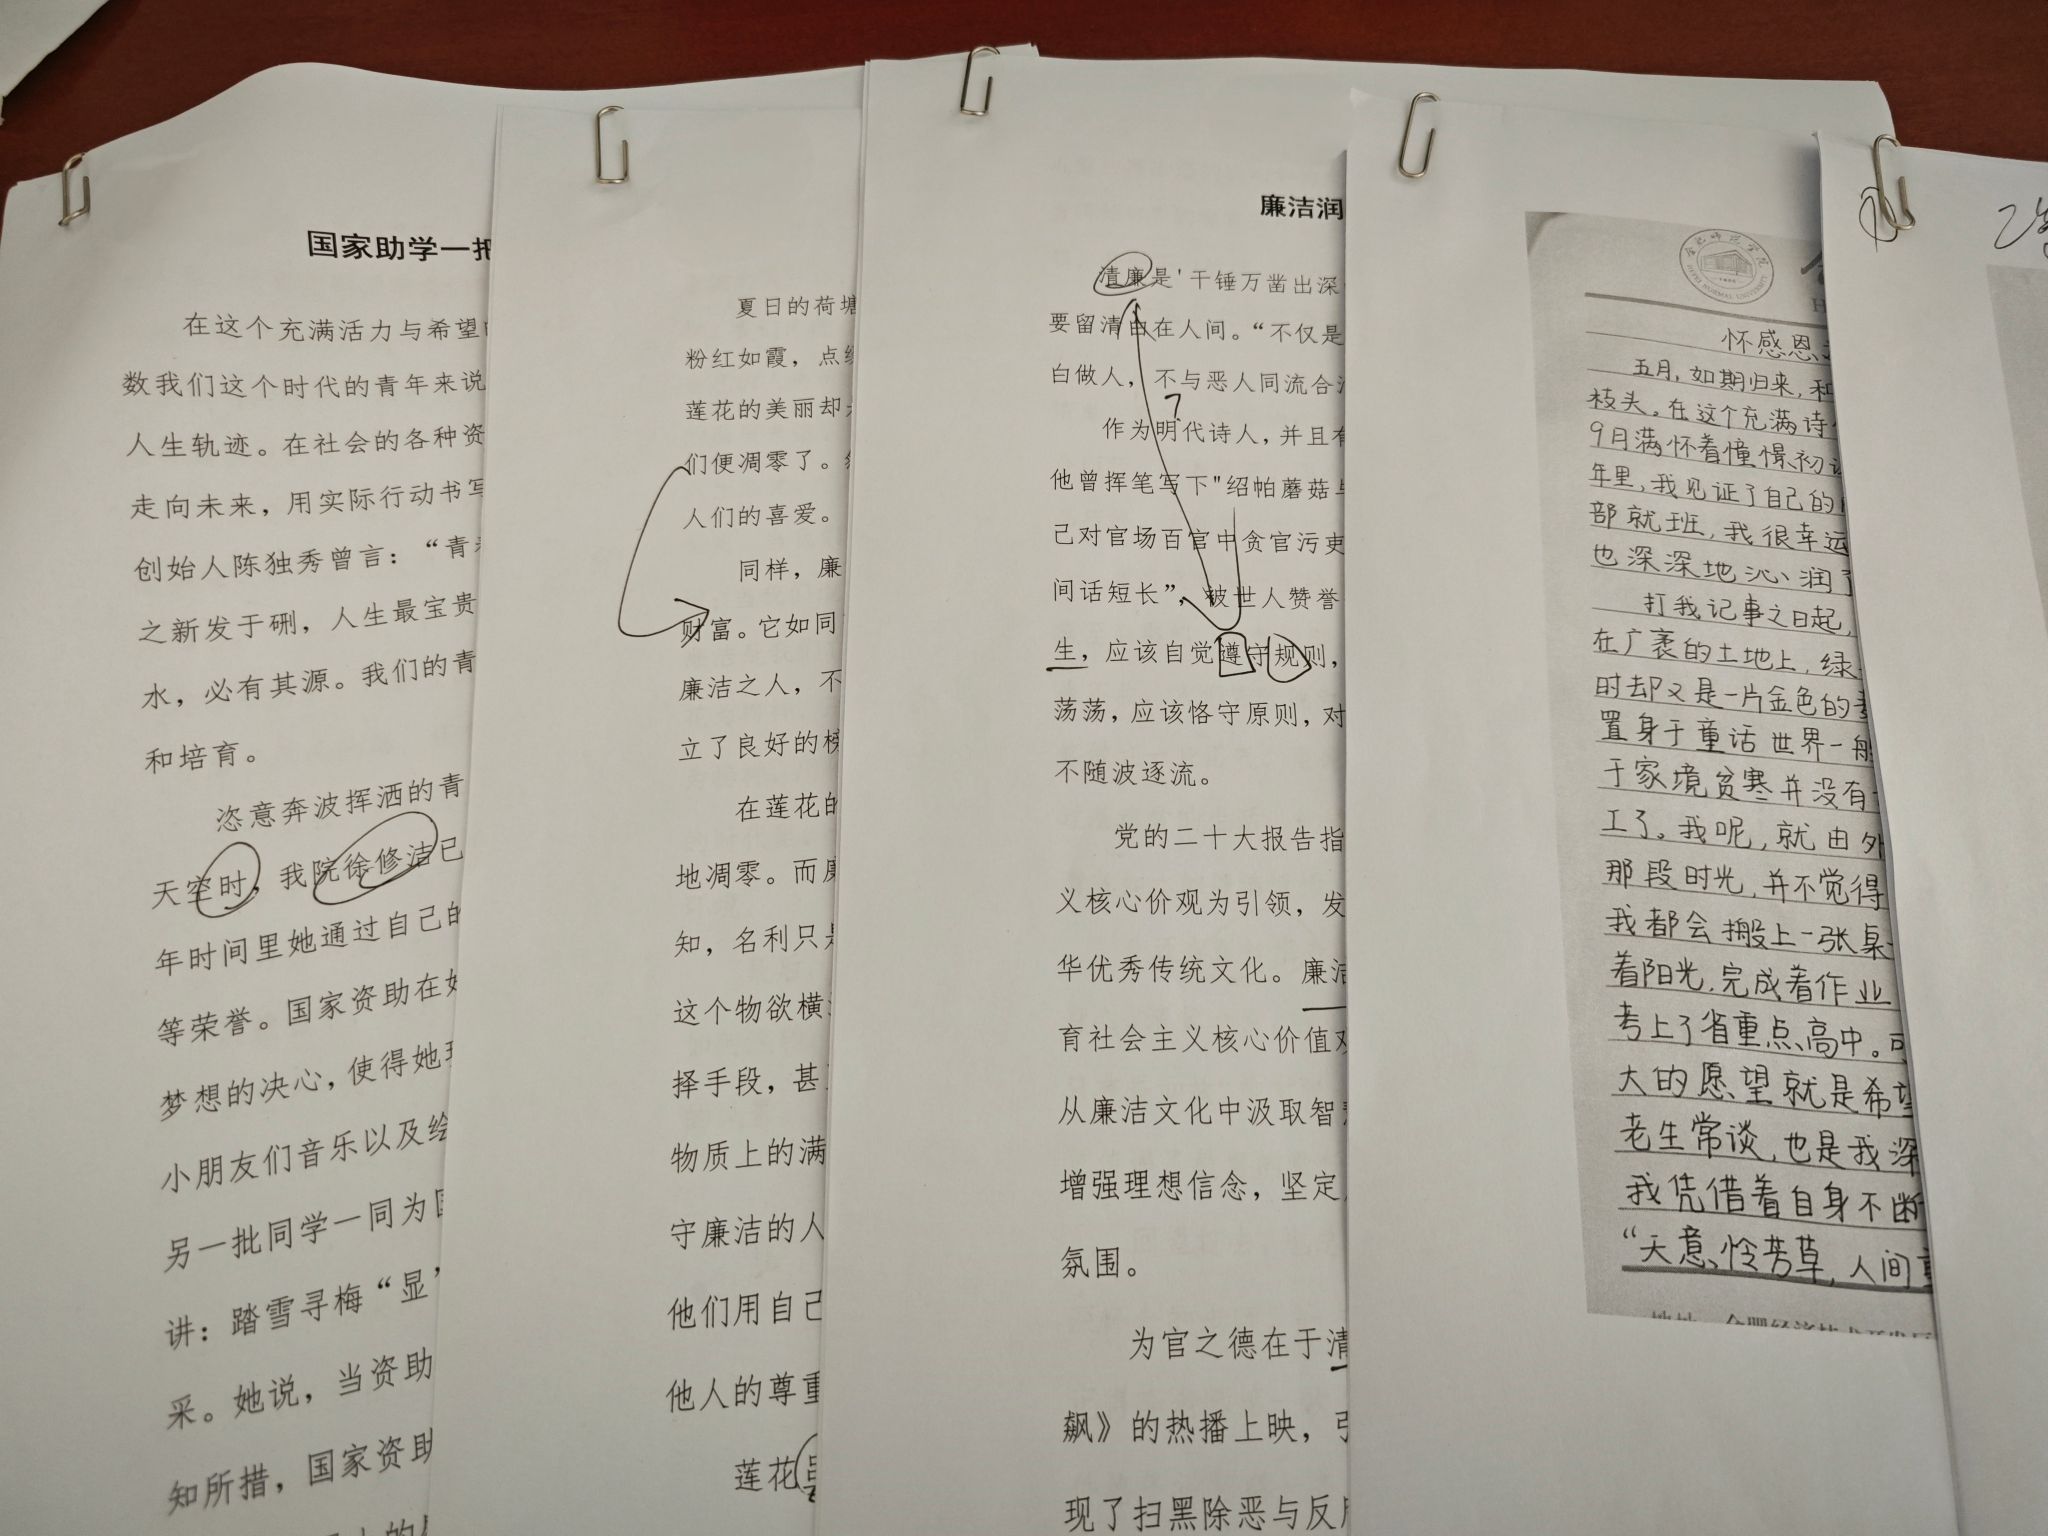 国家助学一把
在这个充满活力与希望的
数我们这个时代的青年来说
人生轨迹。在社会的各种资
走向未来，用实际行动书写
创始人陈独秀曾言：“青春
之新发于硎，人生最宝贵
水，必有其源。我们的青
和培育。
恣意奔波挥洒的青
天空时，我院徐修洁已
年时间里她通过自己的
等荣誉。国家资助在她
梦想的决心，使得她
小朋友们音乐以及绘
另一批同学一同为国
讲：踏雪寻梅“显
采。她说，当资助
知所措，国家资助
夏日的荷塘
粉红如霞，点缀
莲花的美丽却
们便凋零了。
人们的喜爱。
同样，廉
财富。它如同
廉洁之人，不
立了良好的榜
在莲花的
地凋零。而廉
知，名利只是
这个物欲横
择手段，甚
物质上的满
守廉洁的人
他们用自己
他人的尊重
莲花
廉洁润
清廉是'干锤万凿出深
要留清白在人间。“不仅是
白做人，不与恶人同流合
?
作为明代诗人，并且有
他曾挥笔写下"绍帕蘑菇与
己对官场百官中贪官污吏
间话短长”，被世人赞誉
生，应该自觉遵守规则，
荡荡，应该恪守原则，对
不随波逐流。
党的二十大报告指
义核心价观为引领，发
华优秀传统文化。廉洁
育社会主义核心价值观
从廉洁文化中汲取智慧
增强理想信念，坚定
氛围。
为官之德在于清
飙》的热播上映，引
现了扫黑除恶与反腐
合肥师范学院
HEFEI NORMAL UNIVERSITY
怀感恩
五月，如期归来，和
枝头。在这个充满诗
9月满怀着憧憬，初
年里，我见证了自己的
部就班，我很幸运
也深深地沁润了
打我记事之日起，
在广袤的土地上，绿
时却又是一片金色的麦
置身于童话世界一般
于家境贫寒并没有
工了。我呢，就由外
那段时光，并不觉得
我都会搬上一张桌
着阳光，完成着作业
考上了省重点高中。可
大的愿望就是希望
老生常谈，也是我深
我凭借着自身不断
“天意怜芳草，人间